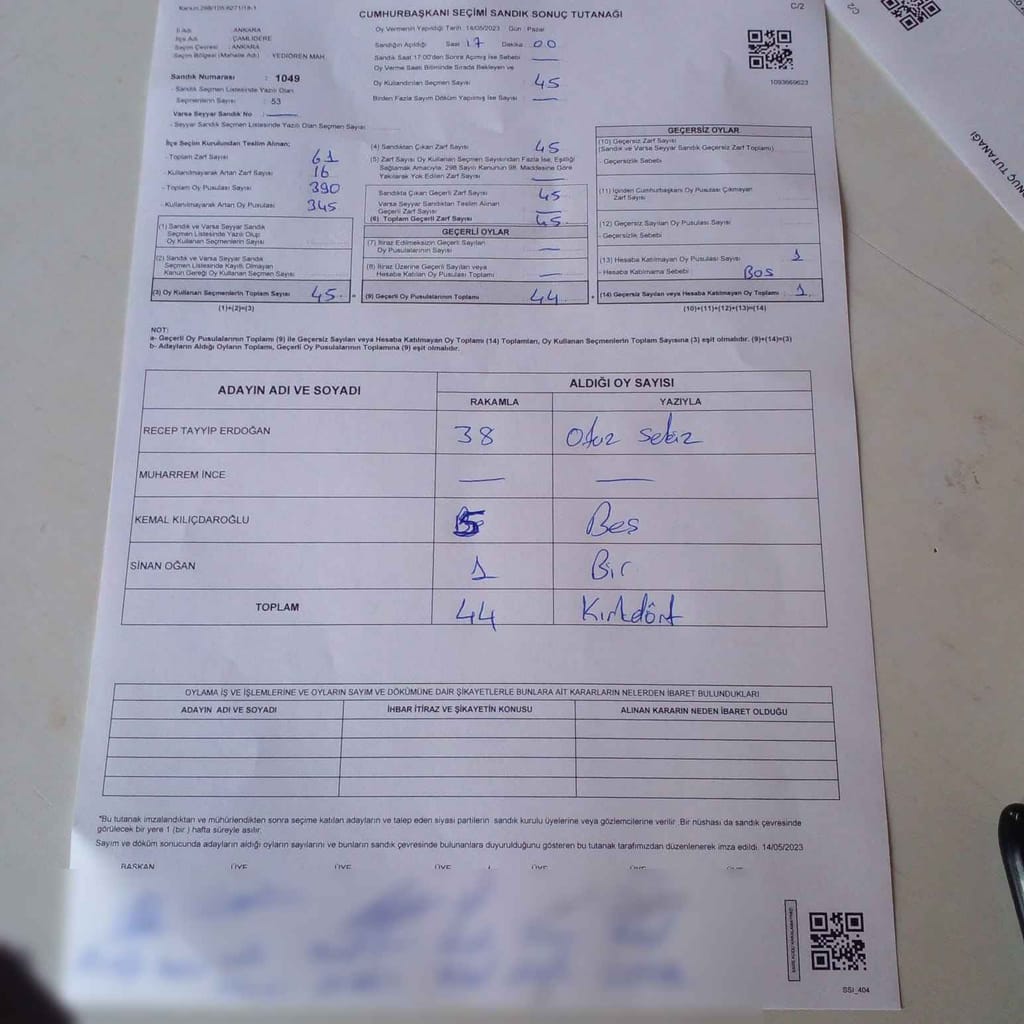 CUMHURBAŞKANI SEÇİMİ SANDIK SONUÇ TUTANAĞI
C/2
İl Adı : ANKARA
İlçe Adı : ÇAMLIDERE
Seçim Çevresi : ANKARA
Seçim Bölgesi (Mahalle Adı) : YEDİÖREN MAH.
Sandık Numarası : 1049
- Sandık Seçmen Listesinde Yazılı Olan
Seçmenlerin Sayısı : 53
Varsa Seyyar Sandık No : —
- Seyyar Sandık Seçmen Listesinde Yazılı Olan Seçmen Sayısı
Oy Vermenin Yapıldığı Tarih : 14/05/2023 Gün : Pazar
Sandığın Açıldığı Saat 17 Dakika 00
Sandık Saat 17:00'den Sonra Açılmış İse Sebebi —
Oy Verme Saati Bitiminde Sırada Bekleyen ve
Oy Kullandırılan Seçmen Sayısı 45
Birden Fazla Sayım Döküm Yapılmış İse Sayısı —
1093669623
İlçe Seçim Kurulundan Teslim Alınan;
- Toplam Zarf Sayısı 61
- Kullanılmayarak Artan Zarf Sayısı 16
- Toplam Oy Pusulası Sayısı 390
- Kullanılmayarak Artan Oy Pusulası 345
(1) Sandık ve Varsa Seyyar Sandık
Seçmen Listesinde Yazılı Olup
Oy Kullanan Seçmenlerin Sayısı
(2) Sandık ve Varsa Seyyar Sandık
Seçmen Listesinde Kayıtlı Olmayan
Kanun Gereği Oy Kullanan Seçmen Sayısı
(3) Oy Kullanan Seçmenlerin Toplam Sayısı 45 =
(1)+(2)=(3)
(4) Sandıktan Çıkan Zarf Sayısı 45
(5) Zarf Sayısı Oy Kullanan Seçmen Sayısından Fazla İse, Eşitliği
Sağlamak Amacıyla; 298 Sayılı Kanunun 98. Maddesine Göre
Yakılarak Yok Edilen Zarf Sayısı —
Sandıkta Çıkan Geçerli Zarf Sayısı 45
Varsa Seyyar Sandıktan Teslim Alınan
Geçerli Zarf Sayısı —
(6) Toplam Geçerli Zarf Sayısı 45
GEÇERLİ OYLAR
(7) İtiraz Edilmeksizin Geçerli Sayılan
Oy Pusulalarının Sayısı —
(8) İtiraz Üzerine Geçerli Sayılan veya
Hesaba Katılan Oy Pusulası Toplamı —
(9) Geçerli Oy Pusulalarının Toplamı 44 +
GEÇERSİZ OYLAR
(10) Geçersiz Zarf Sayısı
(Sandık ve Varsa Seyyar Sandık Geçersiz Zarf Toplamı)
- Geçersizlik Sebebi
(11) İçinden Cumhurbaşkanı Oy Pusulası Çıkmayan
Zarf Sayısı
(12) Geçersiz Sayılan Oy Pusulası Sayısı
- Geçersizlik Sebebi
(13) Hesaba Katılmayan Oy Pusulası Sayısı 1
- Hesaba Katılmama Sebebi Boş
(14) Geçersiz Sayılan veya Hesaba Katılmayan Oy Toplamı : 1
(10)+(11)+(12)+(13)=(14)
NOT:
a- Geçerli Oy Pusulalarının Toplamı (9) ile Geçersiz Sayılan veya Hesaba Katılmayan Oy Toplamı (14) Toplamları, Oy Kullanan Seçmenlerin Toplam Sayısına (3) eşit olmalıdır. (9)+(14)=(3)
b- Adayların Aldığı Oyların Toplamı, Geçerli Oy Pusulalarının Toplamına (9) eşit olmalıdır.
ADAYIN ADI VE SOYADI ALDIĞI OY SAYISI
RAKAMLA YAZIYLA
RECEP TAYYİP ERDOĞAN 38 Otuz Sekiz
MUHARREM İNCE — —
KEMAL KILIÇDAROĞLU 5 Beş
SİNAN OĞAN 1 Bir
TOPLAM 44 Kırkdört
OYLAMA İŞ VE İŞLEMLERİNE VE OYLARIN SAYIM VE DÖKÜMÜNE DAİR ŞİKAYETLERLE BUNLARA AİT KARARLARIN NELERDEN İBARET BULUNDUKLARI
ADAYIN ADI VE SOYADI İHBAR İTİRAZ VE ŞİKAYETİN KONUSU ALINAN KARARIN NEDEN İBARET OLDUĞU
*Bu tutanak imzalandıktan ve mühürlendikten sonra seçime katılan adayların ve talep eden siyasi partilerin sandık kurulu üyelerine veya gözlemcilerine verilir. Bir nüshası da sandık çevresinde
görülecek bir yere 1 (bir) hafta süreyle asılır.
Sayım ve döküm sonucunda adayların aldığı oyların sayılarını ve bunların sandık çevresinde bulunanlara duyurulduğunu gösteren bu tutanak tarafımızdan düzenlenerek imza edildi. 14/05/2023
BAŞKAN ÜYE ÜYE ÜYE ÜYE ÜYE ÜYE
SSI_404
C/2